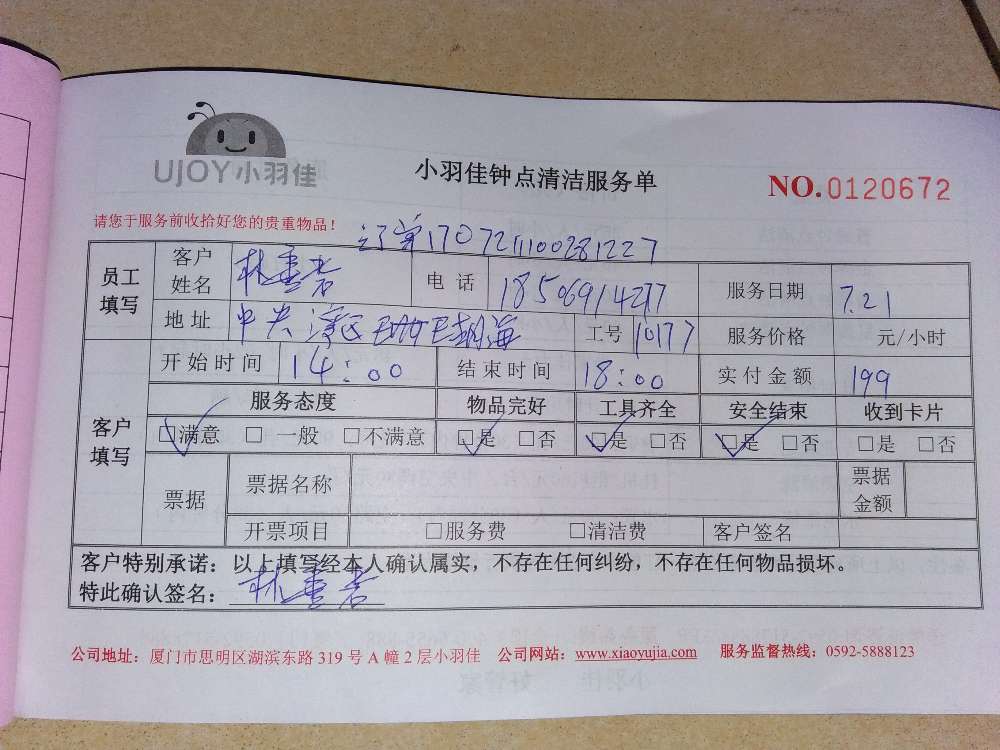 UJOY小羽佳
小羽佳钟点清洁服务单
NO.0120672
请您于服务前收拾好您的贵重物品!
170721100281227
员工填写 客户姓名 林 电话 服务日期 7.21
地址 中央湾区 工号 10177 服务价格 元/小时
客户填写 开始时间 14:00 结束时间 18:00 实付金额 199
服务态度 物品完好 工具齐全 安全结束 收到卡片
☑满意 □一般 □不满意 ☑是 □否 ☑是 □否 ☑是 □否 □是 □否
票据 票据名称 票据金额
开票项目 □服务费 □清洁费 客户签名
客户特别承诺:以上填写经本人确认属实,不存在任何纠纷,不存在任何物品损坏。
特此确认签名: 林
公司地址:厦门市思明区湖滨东路 319 号 A 幢 2 层小羽佳 公司网站:www.xiaoyujia.com 服务监督热线:0592-5888123